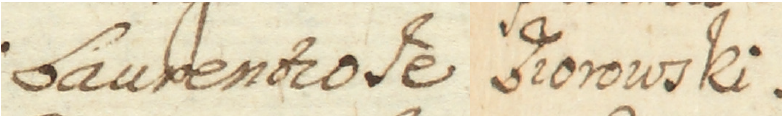 Laurentio Je Trorowski.